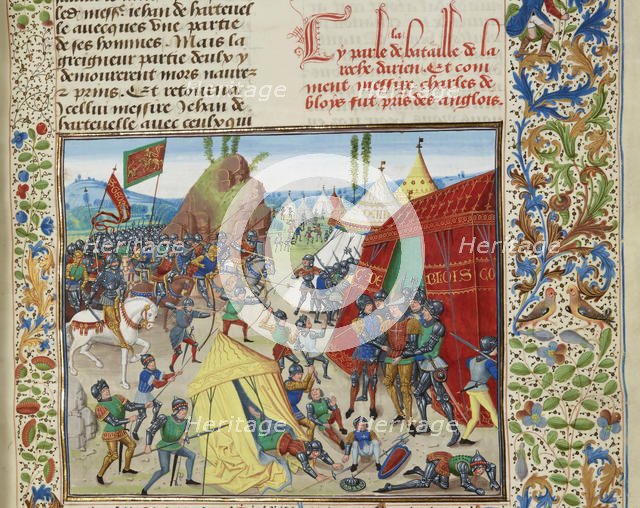 le messe iehan de hartevel
le auecques vne partie
de ses hommes. Mais la
greigneur partie deulx y
demourerent mors naurez
z prins. Et retourna
icellui messire Iehan de
harteuelle auec ceulx qui
la
Cy parle de bataille de la
roche darien. Et com
ment messire charles de
bloys fut prins des anglois.
heritage-images
Heritage Heritage
Heritage Heritage Heritage
Heritage Heritage
DE BLOIS CO